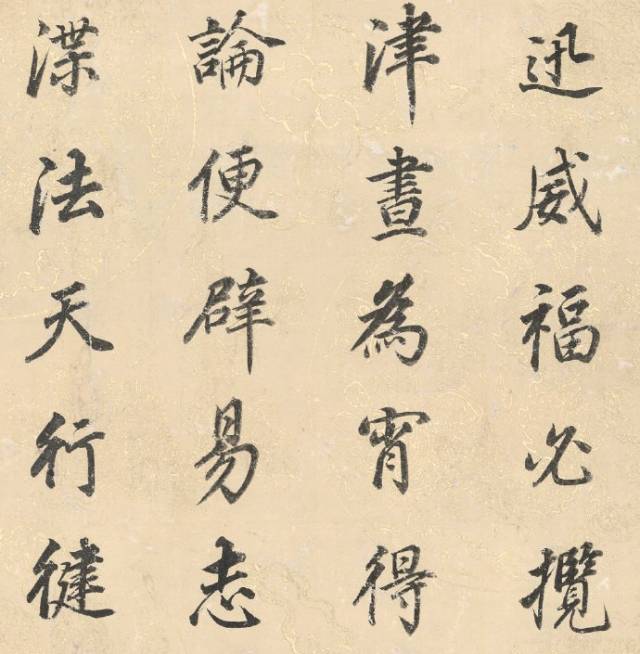 迅威福必攬
津晝為宵得
論便辟易志
渫法天行徤